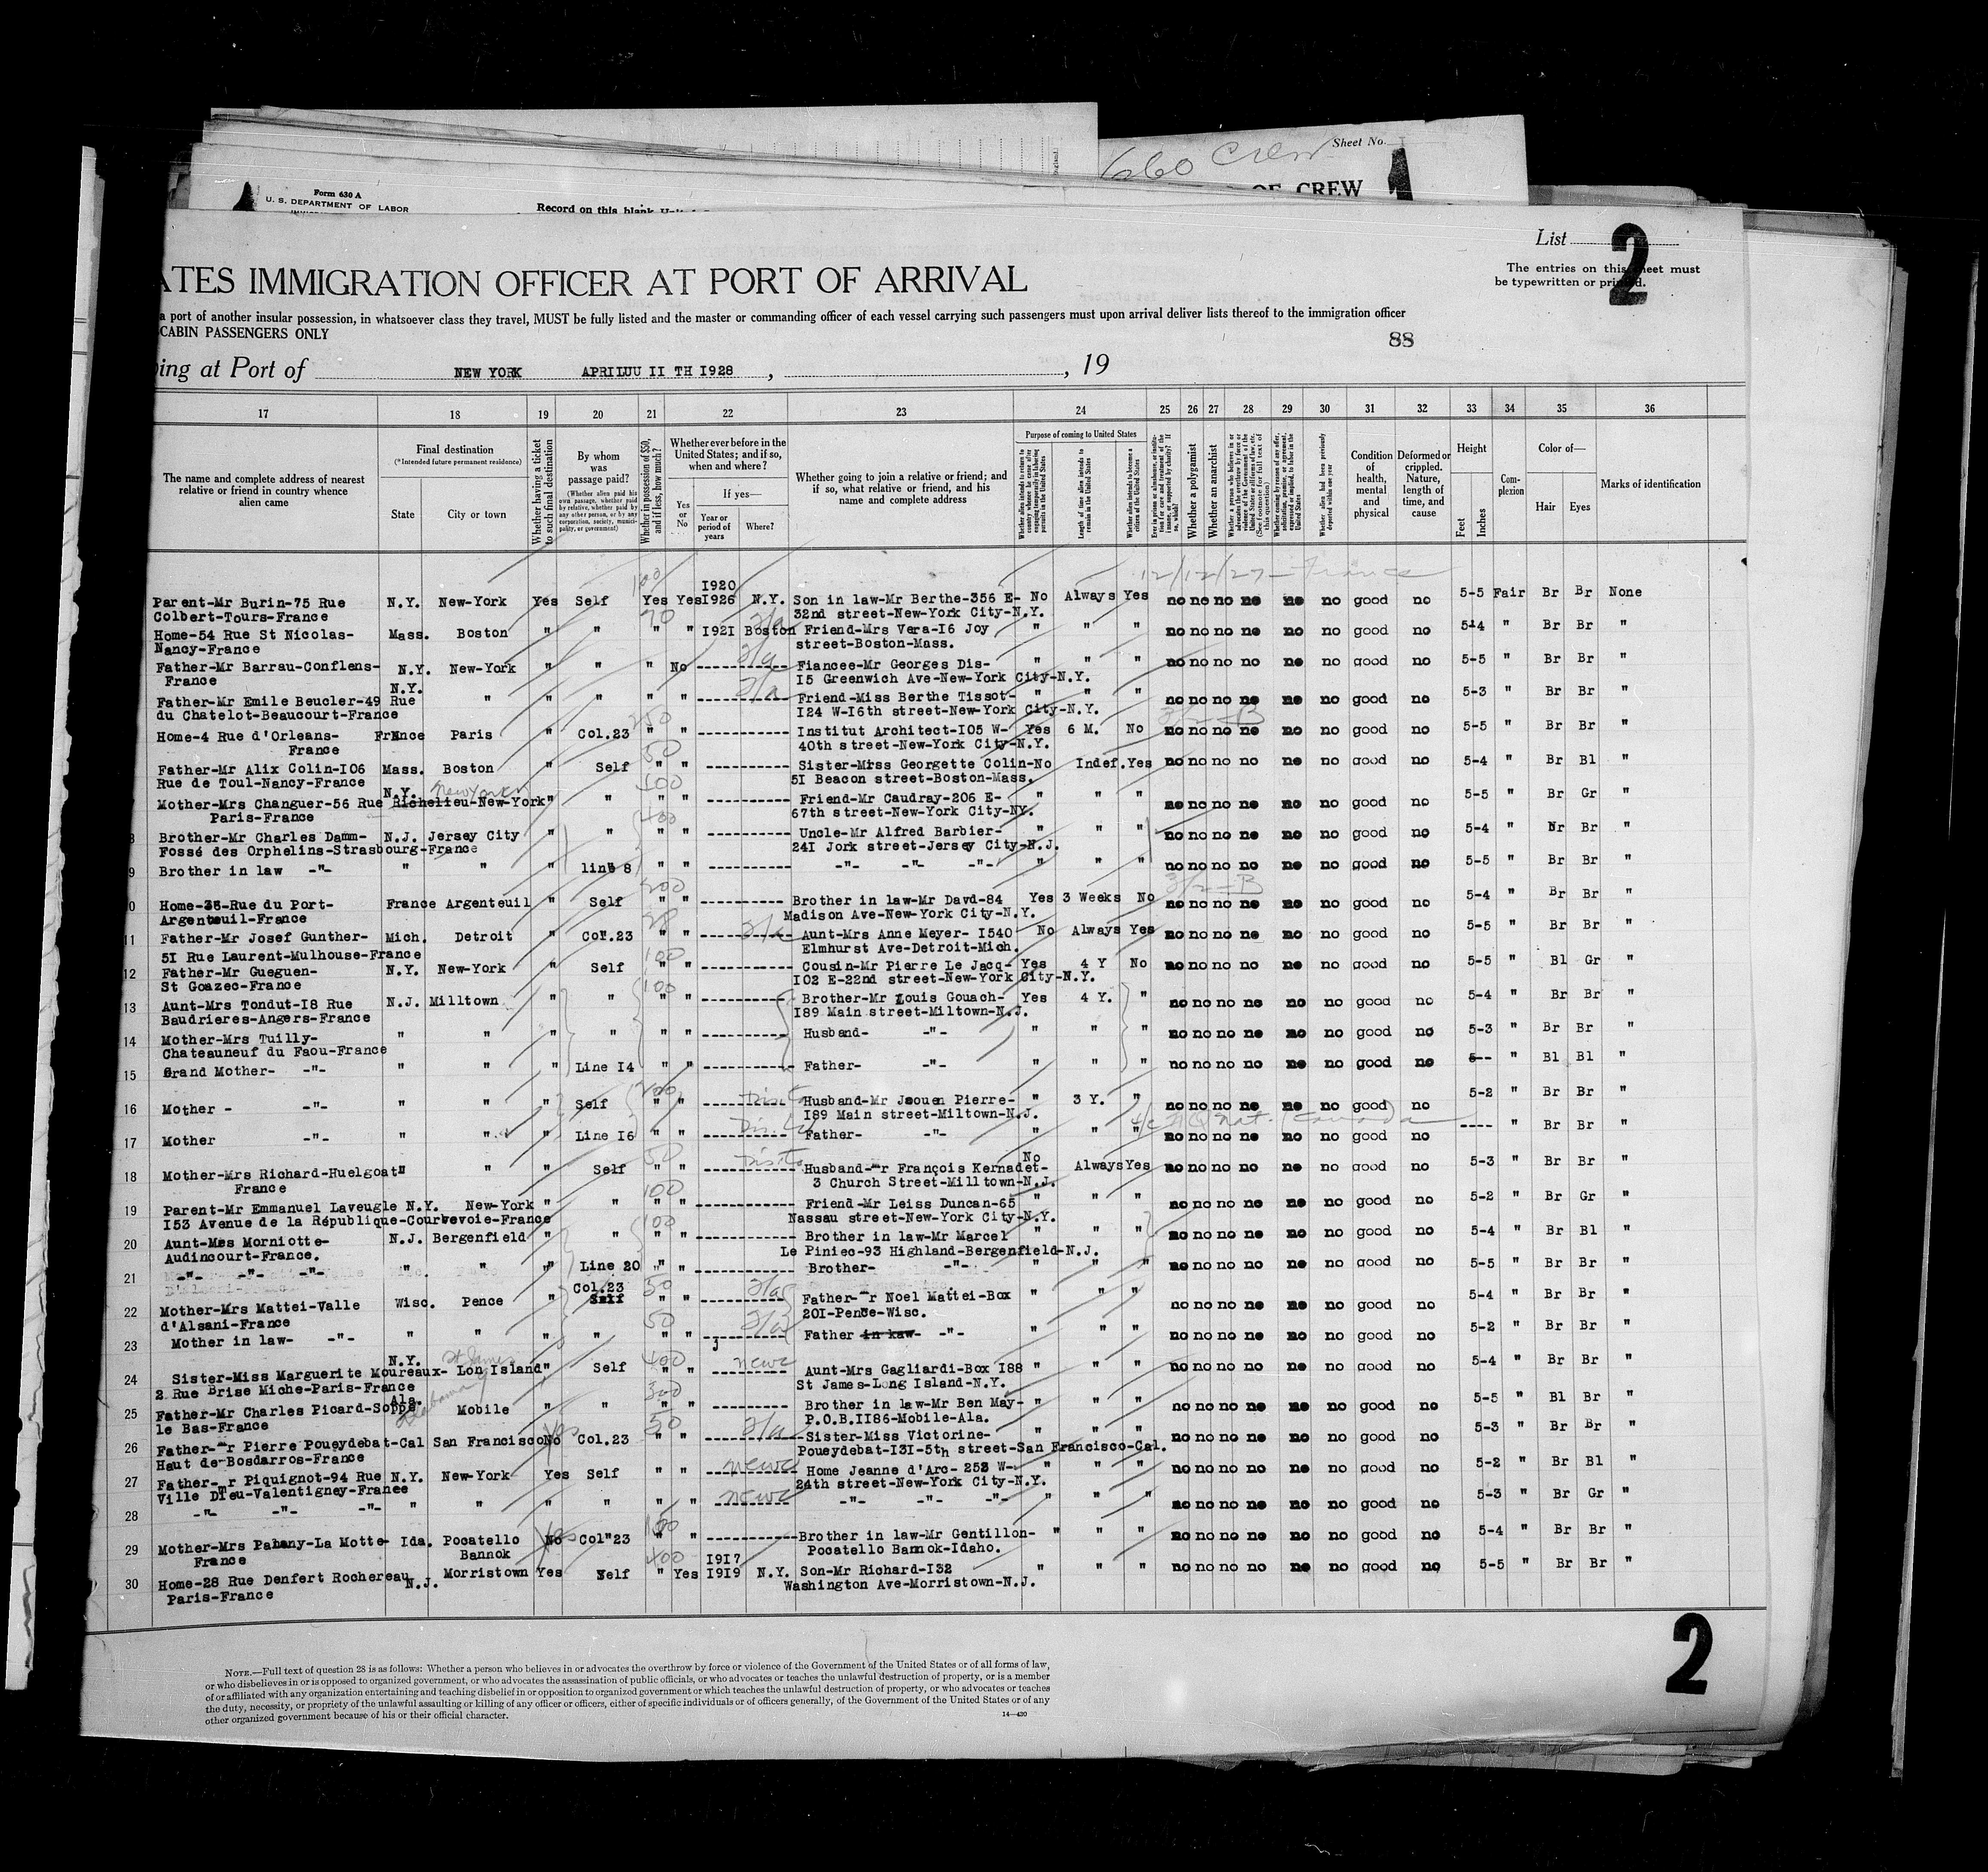 660 Crew
Sheet No.
OF CREW
Form 630 A
U. S. DEPARTMENT OF LABOR
Record on this blank
List
2
The entries on this sheet must
be typewritten or printed.
ATES IMMIGRATION OFFICER AT PORT OF ARRIVAL
a port of another insular possession, in whatsoever class they travel, MUST be fully listed and the master or commanding officer of each vessel carrying such passengers must upon arrival deliver lists thereof to the immigration officer
CABIN PASSENGERS ONLY
88
ing at Port of NEW YORK APRILUU II TH I928 , , 19
17 18 19 20 21 22 23 24 25 26 27 28 29 30 31 32 33 34 35 36
The name and complete address of nearest relative or friend in country whence alien came
Final destination
(*Intended future permanent residence)
State
City or town
Whether having a ticket to such final destination
By whom was passage paid?
(Whether alien paid his own passage, whether paid by relative, whether paid by any other person, or by any corporation, society, municipality, or government)
Whether in possession of $50, and if less, how much?
Whether ever before in the United States; and if so, when and where?
Yes or No
If yes—
Year or period of years
Where?
Whether going to join a relative or friend; and if so, what relative or friend, and his name and complete address
Purpose of coming to United States
Whether alien intends to return to country whence he came after engaging temporarily in laboring pursuits in the United States
Length of time alien intends to remain in the United States
Whether alien intends to become a citizen of the United States
Whether a polygamist
Whether an anarchist
Condition of health, mental and physical
Deformed or crippled. Nature, length of time, and cause
Height
Feet
Inches
Complexion
Color of—
Hair
Eyes
Marks of identification
12/12/27 - France
100
I920
Parent-Mr Burin-75 Rue N.Y. New-York Yes Self Yes Yes I926 N.Y. Son in law-Mr Berthe-356 E- No Always Yes no no no no no no good no 5-5 Fair Br Br None
Colbert-Tours-France 32nd street-New-York City-N.Y.
70
Home-54 Rue St Nicolas- Mass. Boston " " " " I92I Boston Friend-Mrs Vera-I6 Joy " " " no no no no no no good no 5-4 " Br Br "
Nancy-France street-Boston-Mass.
Father-Mr Barrau-Conflens- N.Y. New-York " " " No ---------- Fiancee-Mr Georges Dis- " " " no no no no no no good no 5-5 " Br Br "
France I5 Greenwich Ave-New-York City-N.Y.
N.Y.
Father-Mr Emile Beucler-49 Rue " " " " " ---------- Friend-Miss Berthe Tissot- " " " no no no no no no good no 5-3 " Br Br "
du Chatelot-Beaucourt-France I24 W-I6th street-New-York City-N.Y.
250 3/2 = B
Home-4 Rue d'Orleans- France Paris " Col.23 " " ---------- Institut Architect-I05 W- Yes 6 M. No no no no no no no good no 5-5 " Br Br "
France 40th street-New-York City-N.Y.
50
Father-Mr Alix Colin-I06 Mass. Boston " Self " " ---------- Sister-Miss Georgette Colin- No Indef. Yes no no no no no no good no 5-4 " Br Bl "
Rue de Toul-Nancy-France 5I Beacon street-Boston-Mass.
N.Y. New York 400
Mother-Mrs Changuer-56 Rue Richelieu-New-York " " " " ---------- Friend-Mr Caudray-206 E- " " " no no no no no no good no 5-5 " Br Gr "
Paris-France 67th street-New-York City-NY.
400
8 Brother-Mr Charles Damm- N.J. Jersey City " " " " ---------- Uncle-Mr Alfred Barbier- " " " no no no no no no good no 5-4 " Nr Br "
Fossé des Orphelins-Strasbourg-France 24I Jork street-Jersey City-N.J.
9 Brother in law -"- " " " line 8 " " ---------- -"- -"- -"- " " " no no no no no no good no 5-5 " Br Br "
200 3/2 = B
0 Home-36-Rue du Port- France Argenteuil " Self " " ---------- Brother in law-Mr Davd-84 Yes 3 Weeks No no no no no no no good no 5-4 " Br Br "
Argenteuil-France Madison Ave-New-York City-N.Y.
11 Father-Mr Josef Gunther- Mich. Detroit " Col.23 " " ---------- Aunt-Mrs Anne Meyer- I540 No Always Yes no no no no no no good no 5-5 " Br Br "
5I Rue Laurent-Mulhouse-France Elmhurst Ave-Detroit-Mich.
100
12 Father-Mr Gueguen- N.Y. New-York " Self " " ---------- Cousin-Mr Pierre Le Jacq- Yes 4 Y No no no no no no no good no 5-5 " Bl Gr "
St Goazec-France I02 E-22nd street-New-York City-N.Y.
100
13 Aunt-Mrs Tondut-I8 Rue N.J. Milltown " " " " ---------- Brother-Mr Louis Gouach- Yes 4 Y. " no no no no no no good no 5-4 " Br Br "
Baudrieres-Angers-France I89 Main street-Miltown-N.J.
14 Mother-Mrs Tuilly- " " " " " " ---------- Husband- -"- " " " no no no no no no good no 5-3 " Br Br "
Chateauneuf du Faou-France
15 Grand Mother- -"- " " " Line I4 " " ---------- Father- -"- " " " no no no no no no good no 5-- " Bl Bl "
200
16 Mother - -"- " " " Self " " ---------- Husband-Mr Jaouen Pierre- " 3 Y. " no no no no no no good no 5-2 " Br Br "
I89 Main street-Miltown-N.J.
17 Mother -"- " " " Line I6 " " ---------- Father- -"- " " " no no no no no no good no ---- " Br Br "
50 No
18 Mother-Mrs Richard-Huelgoat " " " Self " " ---------- Husband-Mr François Kernadet- Always Yes no no no no no no good no 5-3 " Br Br "
France 3 Church Street-Milltown-N.J.
100
19 Parent-Mr Emmanuel Laveugle N.Y. New-York " " " " ---------- Friend-Mr Leiss Duncan-65 " " " no no no no no no good no 5-2 " Br Gr "
I53 Avenue de la République-Courbevoie-France Nassau street-New-York City-N.Y.
100
20 Aunt-Mes Morniotte- N.J. Bergenfield " " " " ---------- Brother in law-Mr Marcel " " " no no no no no no good no 5-4 " Br Bl "
Audincourt-France. Le Piniec-93 Highland-Bergenfield-N.J.
21 -"- -"- -"- " " " Line 20 " " ---------- Brother- -"- " " " no no no no no no good no 5-5 " Br Br "
Col.23 50
22 Mother-Mrs Mattei-Valle Wisc. Pence " Self " " ---------- Father-Mr Noel Mattei-Box " " " no no no no no no good no 5-4 " Br Br "
d'Alsani-France 20I-Pence-Wisc.
50
23 Mother in law- -"- " " " " " " ---------- Father in kaw- -"- " " " no no no no no no good no 5-2 " Br Br "
N.Y. St James 400 newc
24 Sister-Miss Marguerite Moureaux- Lon Island " Self " " ---------- Aunt-Mrs Gagliardi-Box I88 " " " no no no no no no good no 5-4 " Br Br "
2 Rue Brise Miche-Paris-France St James-Long Island-N.Y.
Ala. Alabama 300
25 Father-Mr Charles Picard-Soppe Mobile " " " " ---------- Brother in law-Mr Ben May- " " " no no no no no no good no 5-5 " Bl Br "
le Bas-France P.O.B.II86-Mobile-Ala.
yes 50
26 Father-Mr Pierre Poueydebat- Cal San Francisco No Col.23 " " ---------- Sister-Miss Victorine- " " " no no no no no no good no 5-3 " Br Br "
Haut de Bosdarros-France Poueydebat-I3I-5th street-San Francisco-Cal.
newc
27 Father-Mr Piquignot-94 Rue N.Y. New-York Yes Self " " ---------- Home Jeanne d'Arc- 253 W- " " " no no no no no no good no 5-2 " Br Bl "
Ville Dieu-Valentigney-France 24th street-New-York City-N.Y.
newc
28 -"- -"- -"- " " " " " " ---------- -"- -"- -"- " " " no no no no no no good no 5-3 " Br Gr "
yes 100
29 Mother-Mrs Pahany-La Motte- Ida. Pocatello No Col"23 " " ---------- Brother in law-Mr Gentillon- " " " no no no no no no good no 5-4 " Br Br "
France Bannok Pocatello Bannok-Idaho.
400 I9I7
30 Home-28 Rue Denfert Rochereau N.J. Morristown Yes Self " Yes I9I9 N.Y. Son-Mr Richard-I32 " " " no no no no no no good no 5-5 " Br Br "
Paris-France Washington Ave-Morristown-N.J.
2
NOTE.—Full text of question 28 is as follows: Whether a person who believes in or advocates the overthrow by force or violence of the Government of the United States or of all forms of law,
or who disbelieves in or is opposed to organized government, or who advocates the assassination of public officials, or who advocates or teaches the unlawful destruction of property, or is a member
of or affiliated with any organization entertaining and teaching disbelief in or opposition to organized government or which teaches the unlawful destruction of property, or who advocates or teaches
the duty, necessity, or propriety of the unlawful assaulting or killing of any officer or officers, either of specific individuals or of officers generally, of the Government of the United States or of any
other organized government because of his or their official character.
14—430